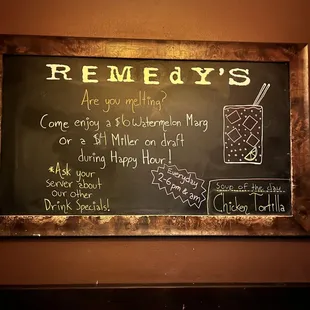 REMEdY'S
Are you melting?
Come enjoy a $6 Watermelon Marg
or a $4 Miller on draft
during Happy Hour!
*Ask your
server about
our other
Drink Specials!
Everyday
2-6pm &
Soup of the day
Chicken Tortilla